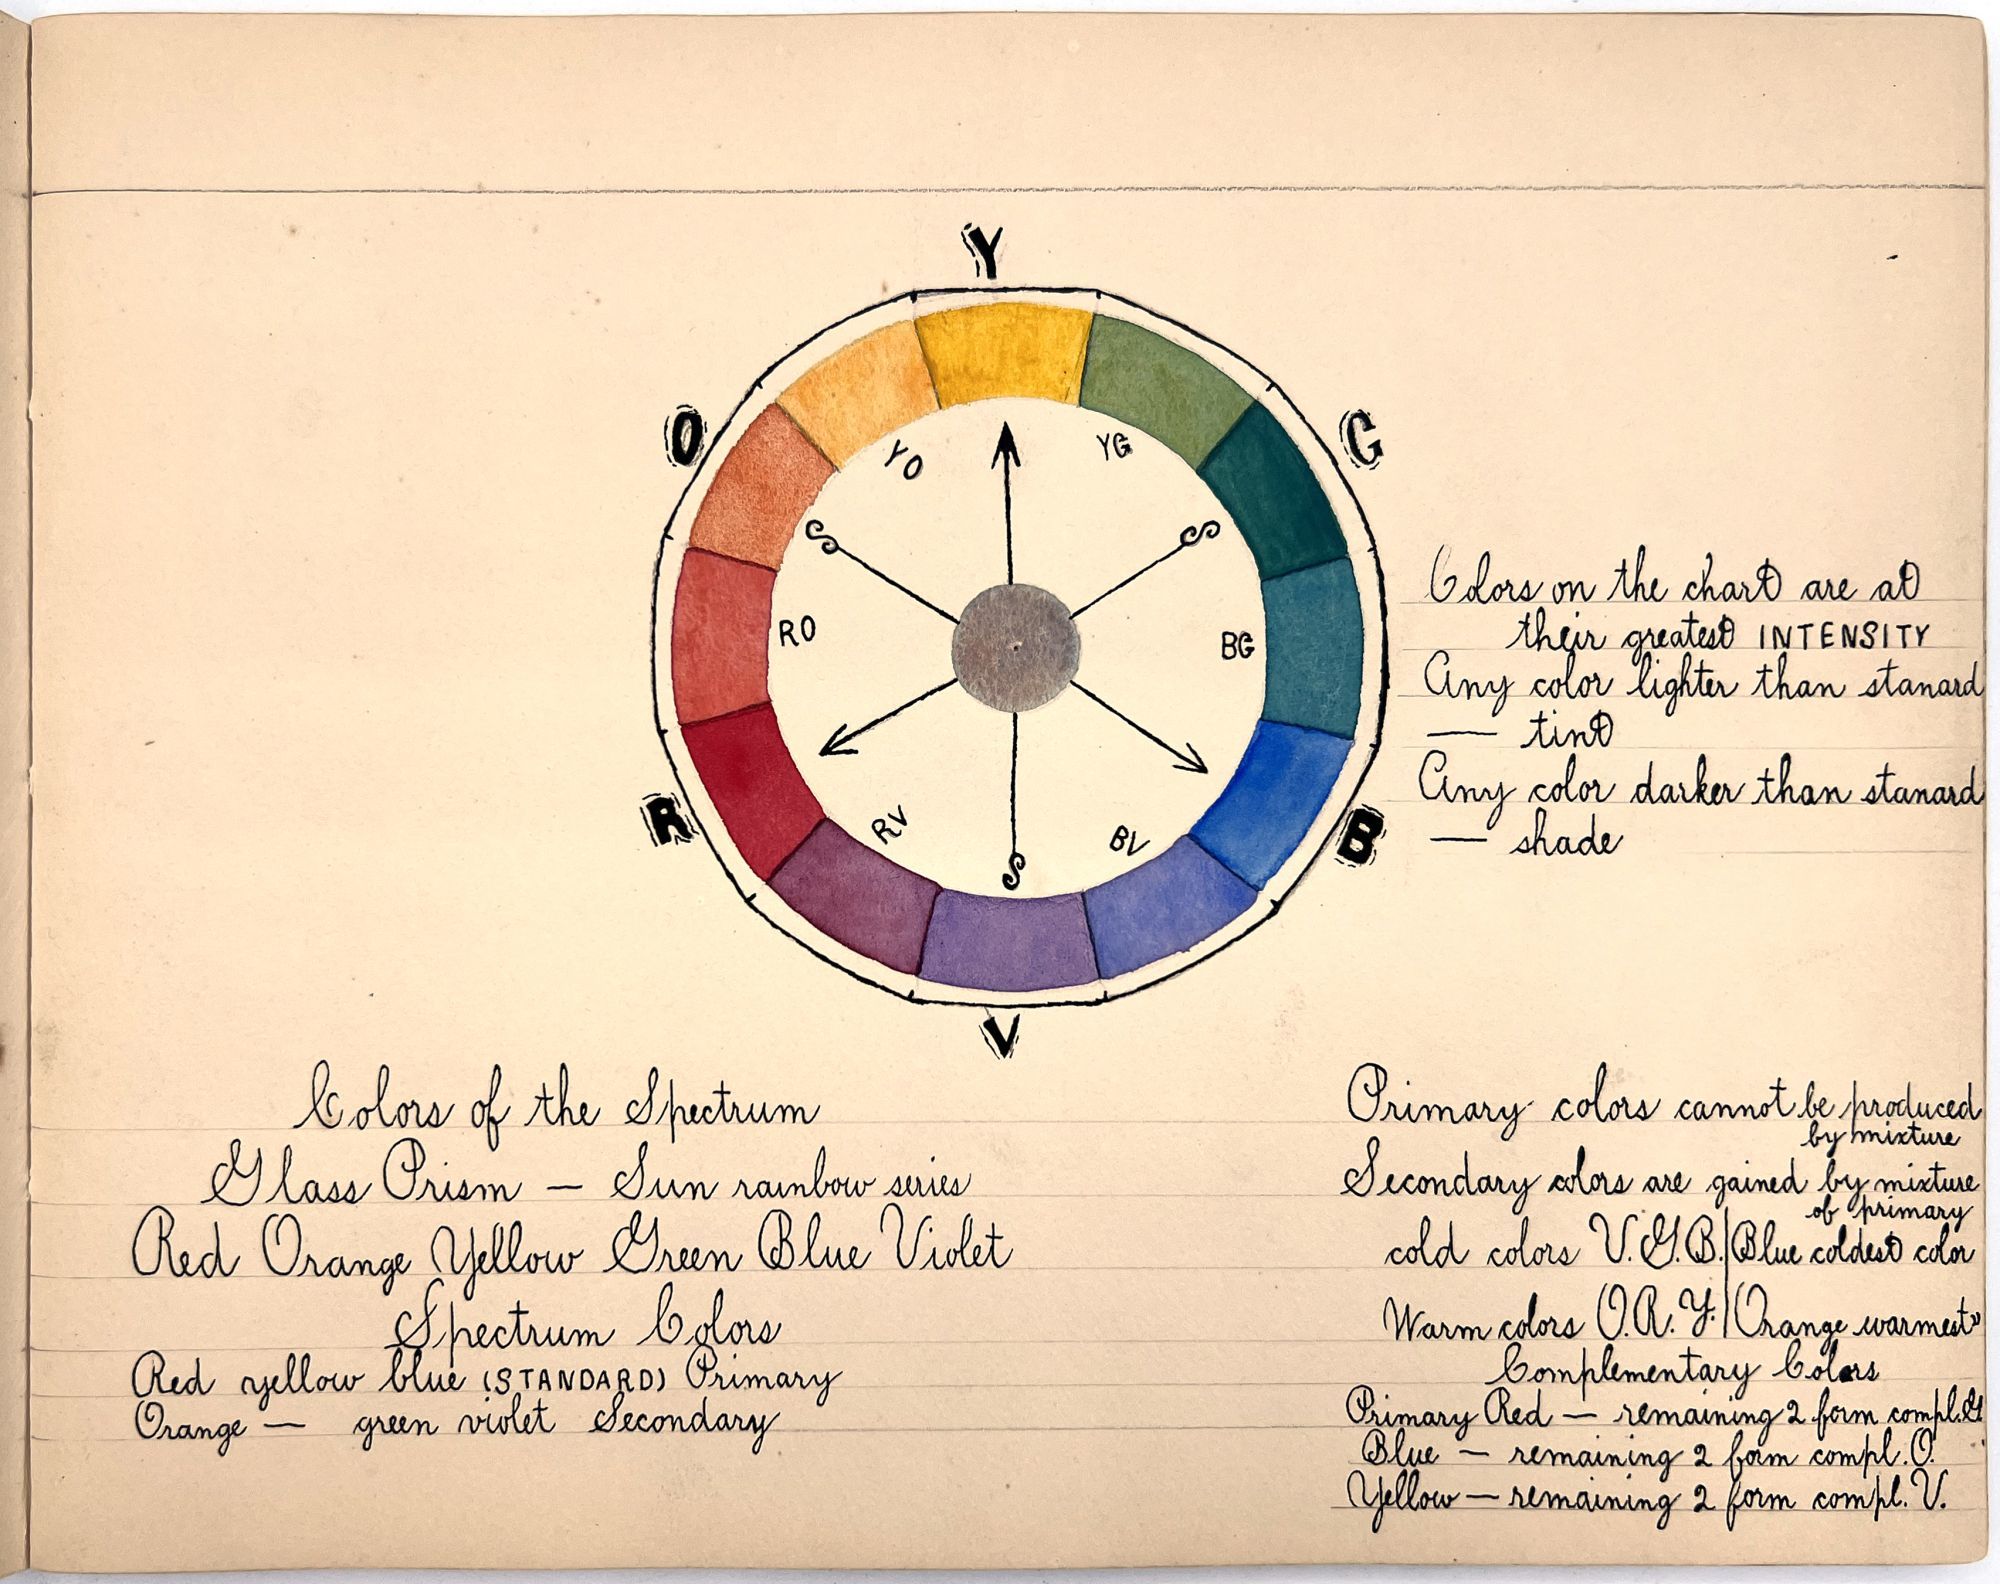 Y
O
G
YO
YG
S
S
RO
BG
R
B
RV
BV
S
V
Colors on the chart are at
their greatest INTENSITY
Any color lighter than stanard
— tint
Any color darker than stanard
— shade
Colors of the Spectrum
Glass Prism — Sun rainbow series
Red Orange Yellow Green Blue Violet
Spectrum Colors
Red yellow blue (STANDARD) Primary
Orange — green violet Secondary
Primary colors cannot be produced
by mixture
Secondary colors are gained by mixture
of primary
cold colors V. G. B. | Blue coldest color
Warm colors O. R. Y. | Orange warmest"
Complementary Colors
Primary Red — remaining 2 form compl. G
Blue — remaining 2 form compl. O.
Yellow — remaining 2 form compl. V.